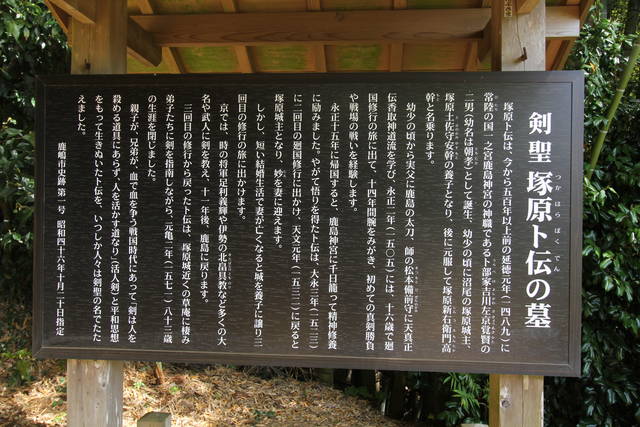 剣聖 塚原卜伝の墓
つかはらぼくでん
塚原卜伝は、今から五百年以上前の延徳元年(一四八九)に
常陸の国一之宮鹿島神宮の神職である卜部家吉川左京覚賢の
二男(幼名は朝孝)として誕生、幼少の頃に沼尾の塚原城主、
塚原土佐守安幹の養子となり、後に元服して塚原新右衛門高
幹と名乗ります。
幼少の頃から実父に鹿島の太刀、師の松本備前守に天真正
伝香取神道流を学び、永正二年(一五〇五)には、十六歳で廻
国修行の旅に出て、十四年間腕をみがき、初めての真剣勝負
や戦場の戦いを経験します。
永正十五年に帰国すると、鹿島神宮に千日籠って精神修養
に励みました。やがて悟りを得た卜伝は、大永三年(一五二三)
に二回目の廻国修行に出かけ、天文元年(一五三二)に戻ると
塚原城主となり、妙を妻に迎えます。
しかし、短い結婚生活で妻が亡くなると城を養子に譲り三
回目の修行の旅に出かけます。
京では、時の将軍足利義輝や伊勢の北畠具教など多くの大
名や武人に剣を教え、十一年後、鹿島に戻ります。
三回目の修行から戻った卜伝は、塚原城近くの草庵に棲み
弟子たちに剣を指南しながら、元亀二年(一五七一)八十三歳
の生涯を閉じました。
親子が、兄弟が、血で血を争う戦国時代にあって「剣は人を
殺める道具にあらず、人を活かす道なり(活人剣)」と平和思想
をもって生きぬいた卜伝を、いつしか人々は剣聖の名でたた
えました。
鹿嶋市史跡 第一号 昭和四十六年十月二十日指定